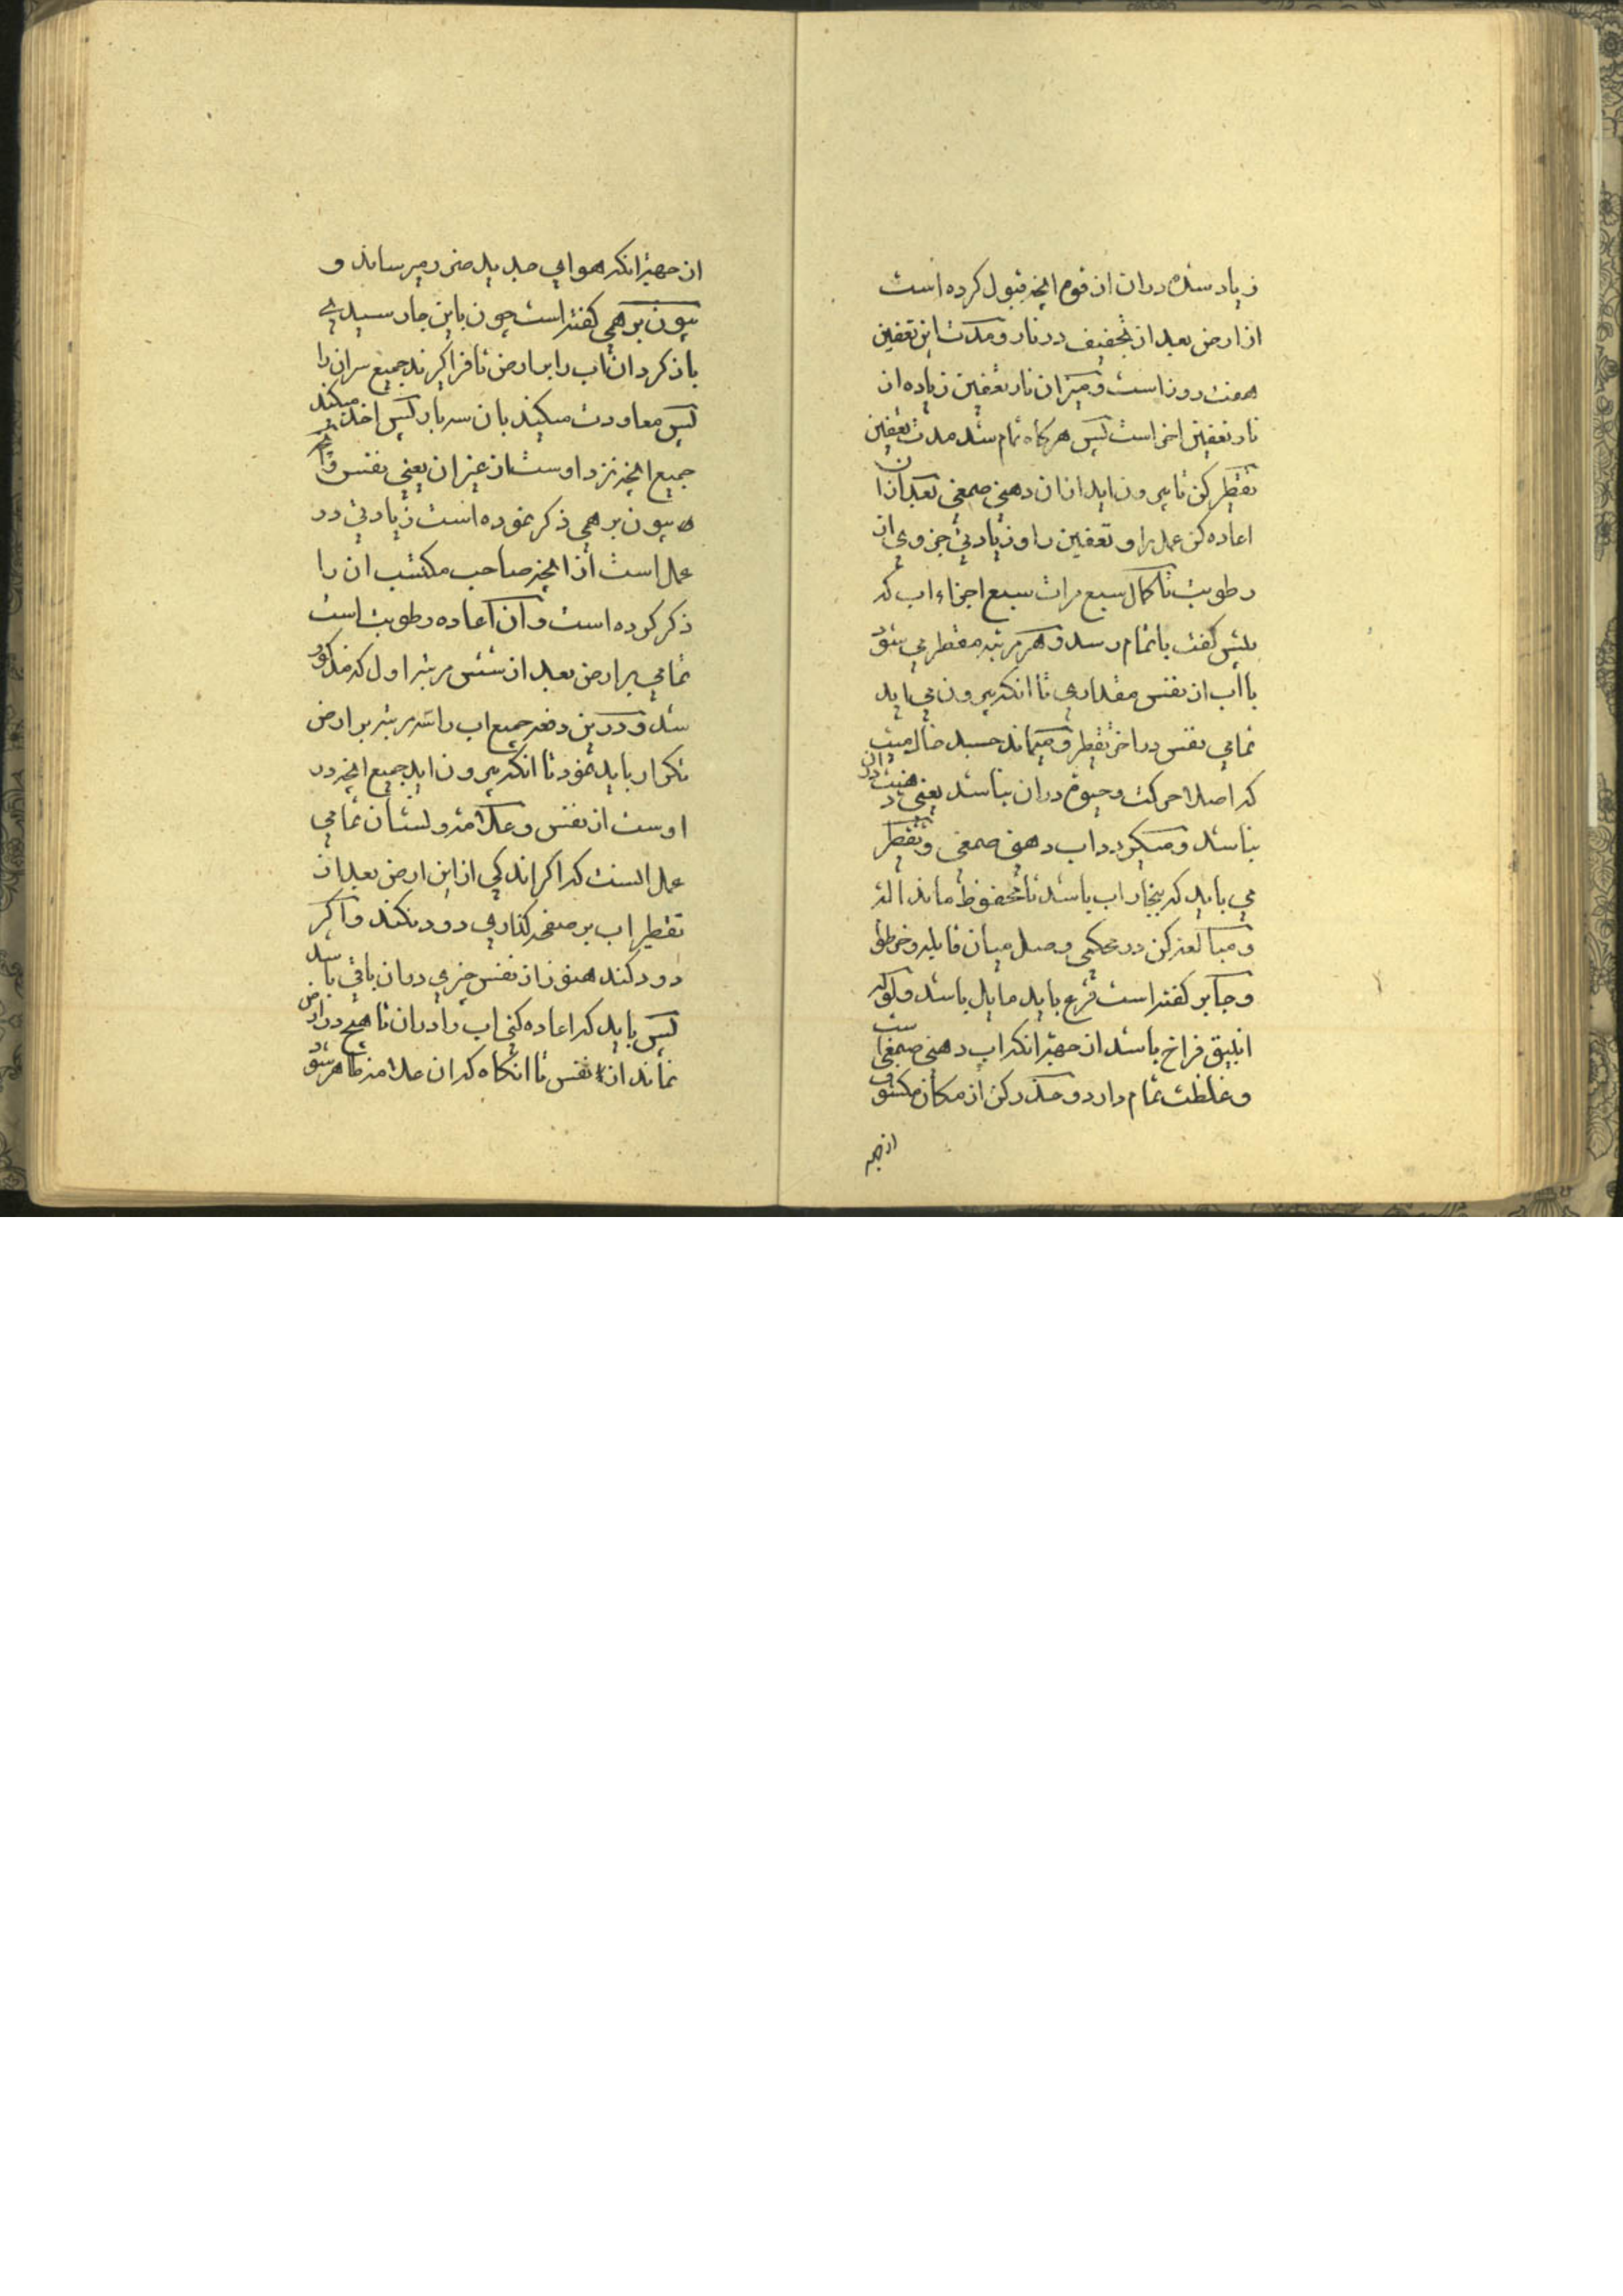 زیاد شده دران از قوم انچه قبول کرده است
از ارض بعد از تجفیف در نار و مدت این تعفین
هفت روز است و میزان نار تعفین زیاده از
نار تعفین اخر است پس هر کاه تمام شد مدت تعفین
تقطیر کن تا بیرون اید ازان دهنی صمغی بعد ازان
اعاده کن عمل را و تعفین را و زیادتی جزوی از
رطوبت تا کمال سبع مرات سبع اجزاء اب که
پیش کفت باتمام رسد و هر مرتبه مقطر می شود
با اب از نفس مقداری تا انکه بیرون می اید
تمامی نفس در اخر تقطیر و میماند جسد خاک میت
که اصلا حرکت و حیوة دران نباشد یعنی دهنیت دران
نباشد و میکردد اب دهنی صمغی و تقطیر
می باید که ببخار اب باشد تا محفوظ ماند الته
و مبالغه کن در محکمی وصل میان قابله و خرطوم
و جابر کفته است قرع باید مایل باشد و کلوی
انبیق فراخ باشد از جهة انکه اب دهنی صمغی است
و غلظت تمام دارد و حذر کن از مکان مکشوف
از جهة
از جهة انکه هوای جدید ضرر میرساند و
بیون برهمی کفته است چون باین جا رسیدی
باز کردان اب را بر ارض تا فرا کیرند جمیع سران را
پس معاودت میکند بان سه بار پس اخذ میکند
جمیع انچه نزد اوست از غیر ان یعنی نفس و انچه
بیون برهمی ذکر نموده است زیادتی در
عمل است از انچه صاحب مکتسب ان را
ذکر کرده است و ان اعاده رطوبت است
تمامی بر ارض بعد از شش مرتبه اول که مذکور
شد و درین دفعه جمیع اب را سه مرتبه بر ارض
تکرار باید نمود تا انکه بیرون اید جمیع انچه در
اوست از نفس و علامة و نشان تمامی
عمل انست که اکر اندکی ازین ارض بعد از
تقطیر اب بر صفحه کذاری دود نکند و اکر
دود کند هنوز از نفس چیزی دران باقی باشد
پس باید که اعاده کنی اب را دران تا هیچ در ارض
نماند از نفس تا انکاه که ان علامة ظاهر شود